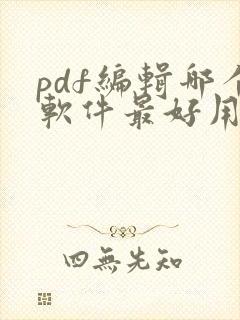 pdf編輯哪个
軟件最好用
四無先知